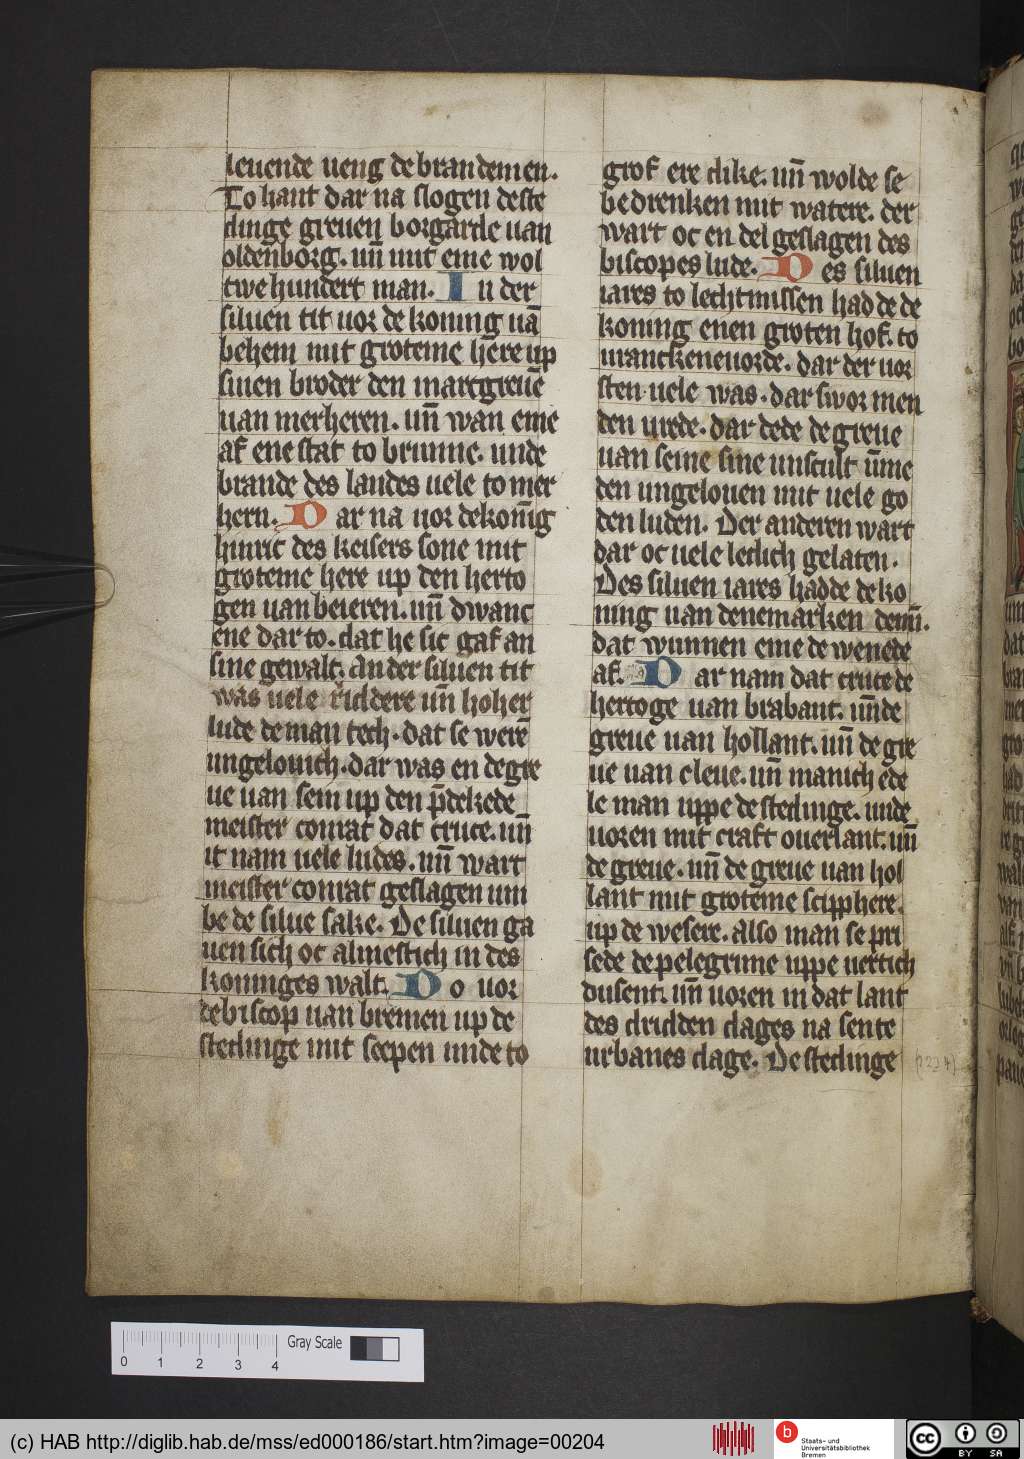 leuende ueng de brandemen.
To hant dar na slogen deste
dinge greuen borgarde uan
oldenborg. un̄ mit eme wol
twe hundert man. In der
siluen tit uor de koning uā
behem mit groteme here up
sinen broder den marcgreuē
uan merheren. un̄ wan eme
af ene stat to brunne. unde
brande des landes uele to mer
hern. Dar na uor de konīg
hinric des keisers sone mit
groteme here up den herto
gen uan beieren. un̄ dwanc
ene dar to. dat he sic gaf an
sine gewalt. An der siluen tit
was uele riddere un̄ hoher
lude de man tech. dat se werē
ungelouich. dar was en de gre
ue uan sein up den p̄dekede
meister conrat dat cruce. un̄
it nam uele ludes. un̄ wart
meister conrat geslagen um
be de silue sake. De siluen ga
uen sich oc almestich in des
koninges walt. Do uor
de biscop uan bremen up de
stedinge mit scepen unde to
grof ere dike. un̄ wolde se
bedrenken mit watere. der
wart oc en del geslagen des
biscopes lude. Des siluen
iares to lechtmissen hadde de
koning enen groten hof. to
uranckeneuorde. dar der uor
sten uele was. dar swor men
den urede. dar dede de greue
uan seine sine unscult ūme
den ungelouen mit uele go
den luden. Der anderen wart
dar oc uele ledich gelaten.
Des siluen iares hadde de ko
ning uan denemarken demī.
dat wunnen eme de wenede
af. Dar nam dat cruce de
hertoge uan brabant. un̄de
greue uan hollant. un̄ de gre
ue uan cleue. un̄ manich ede
le man uppe de stedinge. unde
uoren mit craft ouer lant. un̄
de greue. un̄ de greue uan hol
lant mit groteme scipphere.
up de wesere. also man se pri
sede de pelegrime uppe uertich
dusent. un̄ uoren in dat lant
des dridden dages na sente
urbanes dage. De stedinge
(1234)
Gray Scale
0 1 2 3 4
(c) HAB http://diglib.hab.de/mss/ed000186/start.htm?image=00204
b
Staats- und
Universitätsbibliothek
Bremen
cc
BY SA